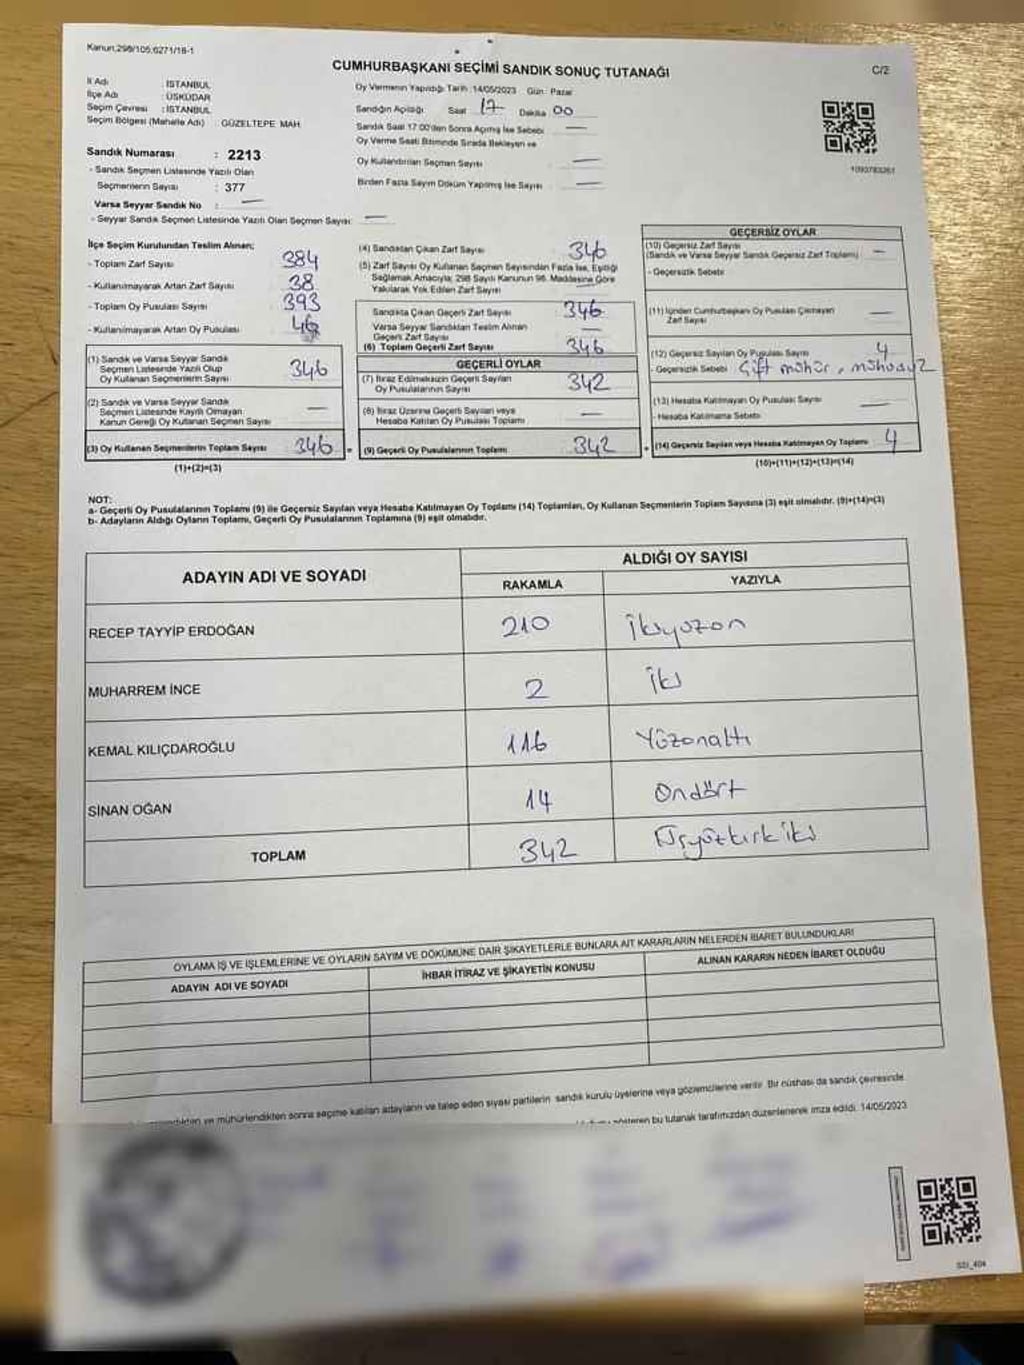 Kanun;298/105;6271/18-1
CUMHURBAŞKANI SEÇİMİ SANDIK SONUÇ TUTANAĞI
C/2
İl Adı : İSTANBUL
İlçe Adı : ÜSKÜDAR
Seçim Çevresi : İSTANBUL
Seçim Bölgesi (Mahalle Adı) : GÜZELTEPE MAH.
Sandık Numarası : 2213
- Sandık Seçmen Listesinde Yazılı Olan
Seçmenlerin Sayısı : 377
Varsa Seyyar Sandık No : —
- Seyyar Sandık Seçmen Listesinde Yazılı Olan Seçmen Sayısı: —
Oy Vermenin Yapıldığı Tarih :14/05/2023 Gün: Pazar
Sandığın Açılışı Saat 17 Dakika 00
Sandık Saat 17:00'den Sonra Açılmış İse Sebebi —
Oy Verme Saati Bitiminde Sırada Bekleyen ve
Oy Kullandırılan Seçmen Sayısı —
Birden Fazla Sayım Döküm Yapılmış İse Sayısı —
1093783261
İlçe Seçim Kurulundan Teslim Alınan;
- Toplam Zarf Sayısı 384
- Kullanılmayarak Artan Zarf Sayısı 38
- Toplam Oy Pusulası Sayısı 393
- Kullanılmayarak Artan Oy Pusulası
(1) Sandık ve Varsa Seyyar Sandık
Seçmen Listesinde Yazılı Olup
Oy Kullanan Seçmenlerin Sayısı 346
(2) Sandık ve Varsa Seyyar Sandık
Seçmen Listesinde Kayıtlı Olmayan
Kanun Gereği Oy Kullanan Seçmen Sayısı —
(3) Oy Kullanan Seçmenlerin Toplam Sayısı 346
(1)+(2)=(3)
(4) Sandıktan Çıkan Zarf Sayısı 346
(5) Zarf Sayısı Oy Kullanan Seçmen Sayısından Fazla İse, Eşitliği
Sağlamak Amacıyla; 298 Sayılı Kanunun 98. Maddesine Göre
Yakılarak Yok Edilen Zarf Sayısı —
Sandıkta Çıkan Geçerli Zarf Sayısı 346
Varsa Seyyar Sandıktan Teslim Alınan
Geçerli Zarf Sayısı —
(6) Toplam Geçerli Zarf Sayısı 346
GEÇERLİ OYLAR
(7) İtiraz Edilmeksizin Geçerli Sayılan
Oy Pusulalarının Sayısı 342
(8) İtiraz Üzerine Geçerli Sayılan veya
Hesaba Katılan Oy Pusulası Toplamı —
= (9) Geçerli Oy Pusulalarının Toplamı 342
GEÇERSİZ OYLAR
(10) Geçersiz Zarf Sayısı —
(Sandık ve Varsa Seyyar Sandık Geçersiz Zarf Toplamı)
- Geçersizlik Sebebi
(11) İçinden Cumhurbaşkanı Oy Pusulası Çıkmayan
Zarf Sayısı —
(12) Geçersiz Sayılan Oy Pusulası Sayısı 4
- Geçersizlik Sebebi Çift mühür,
(13) Hesaba Katılmayan Oy Pusulası Sayısı —
- Hesaba Katılmama Sebebi
+ (14) Geçersiz Sayılan veya Hesaba Katılmayan Oy Toplamı 4
(10)+(11)+(12)+(13)=(14)
NOT:
a- Geçerli Oy Pusulalarının Toplamı (9) ile Geçersiz Sayılan veya Hesaba Katılmayan Oy Toplamı (14) Toplamları, Oy Kullanan Seçmenlerin Toplam Sayısına (3) eşit olmalıdır. (9)+(14)=(3)
b- Adayların Aldığı Oyların Toplamı, Geçerli Oy Pusulalarının Toplamına (9) eşit olmalıdır.
ADAYIN ADI VE SOYADI
ALDIĞI OY SAYISI
RAKAMLA YAZIYLA
RECEP TAYYİP ERDOĞAN 210 İkiyüzon
MUHARREM İNCE 2 İki
KEMAL KILIÇDAROĞLU 116 Yüzonaltı
SİNAN OĞAN 14 Ondört
TOPLAM 342 Üçyüzkırkiki
OYLAMA İŞ VE İŞLEMLERİNE VE OYLARIN SAYIM VE DÖKÜMÜNE DAİR ŞİKAYETLERLE BUNLARA AİT KARARLARIN NELERDEN İBARET BULUNDUKLARI
ADAYIN ADI VE SOYADI İHBAR İTİRAZ VE ŞİKAYETİN KONUSU ALINAN KARARIN NEDEN İBARET OLDUĞU
ve mühürlendikten sonra seçime katılan adayların ve talep eden siyasi partilerin sandık kurulu üyelerine veya gözlemcilerine verilir. Bir nüshası da sandık çevresinde
gösteren bu tutanak tarafımızdan düzenlenerek imza edildi. 14/05/2023